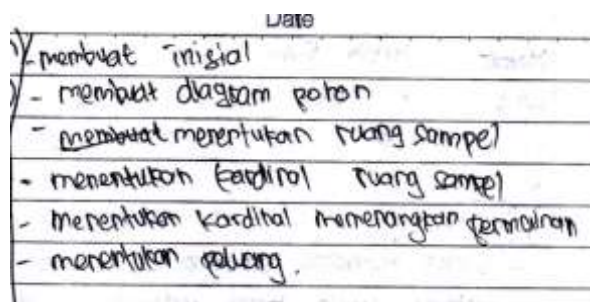 Date
- membuat inisial
- membuat diagram pohon
- membuat menentukan ruang sampel
- menentukan kardinal ruang sampel
- menentukan kardinal memenangkan permainan
- menentukan peluang.